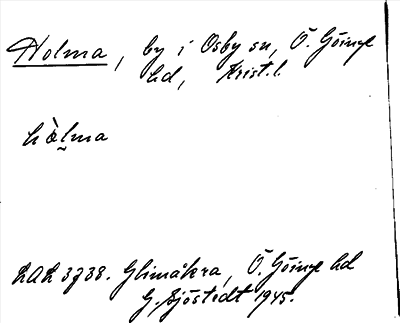 Holma, by i Osby sn, Ö. Göinge
hd, Krist. l.
hò̰lma
LAL 3738. Glimåkra, Ö. Göinge hd
G. Sjöstedt 1945.